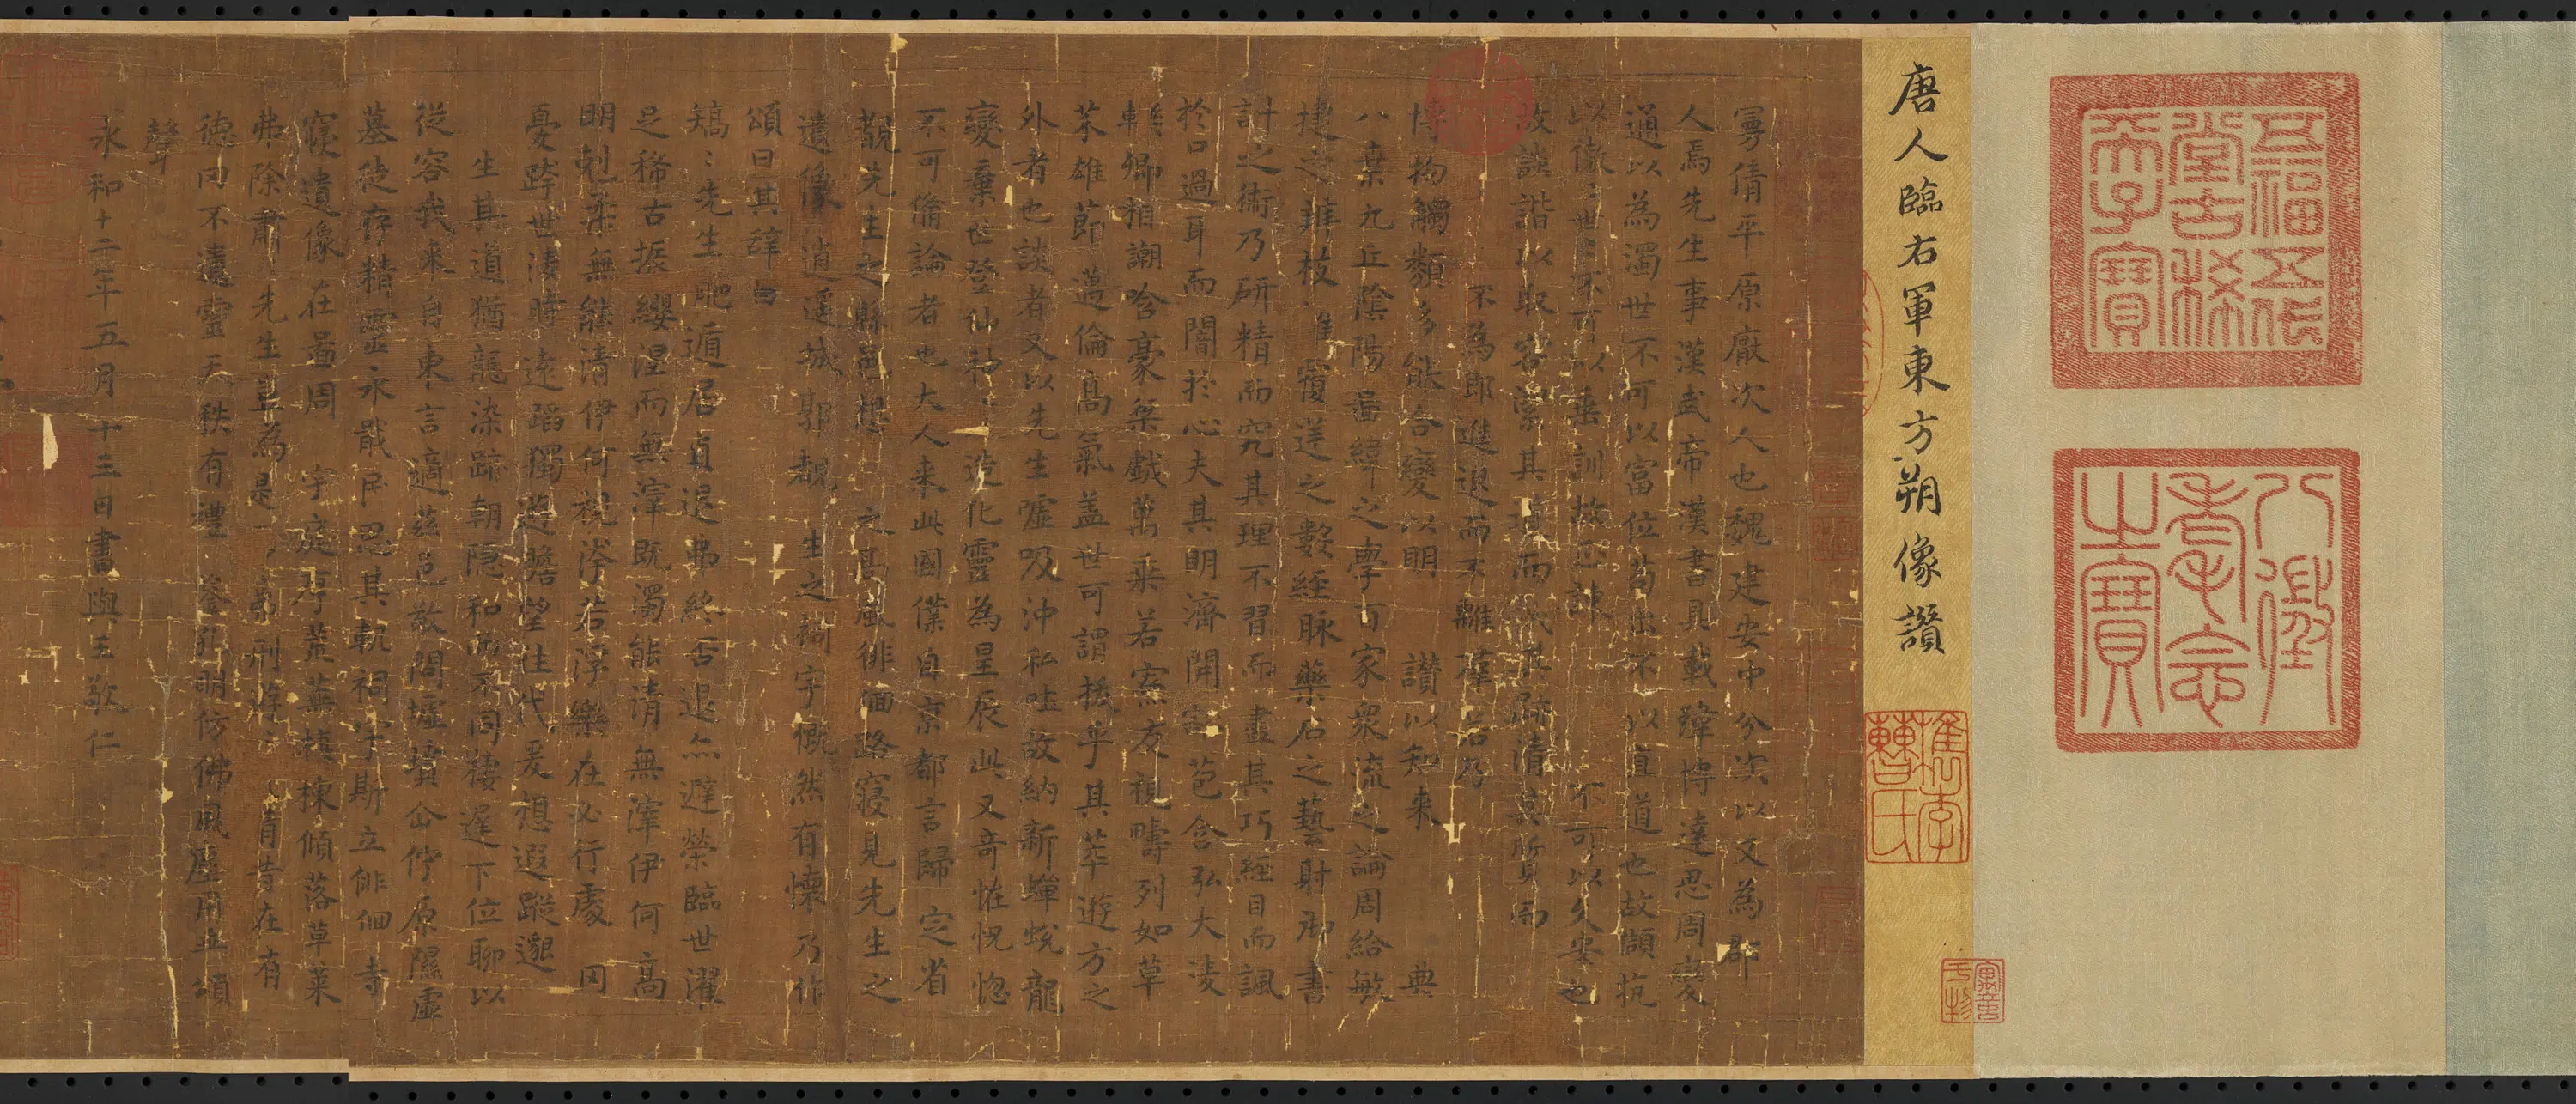 五福五代
堂古稀
天子寶
八徵
耄念
之寶
唐人臨右軍東方朔像讚
檇李
曹氏
曼倩平原厭次人也魏建安中分次以又為郡
人焉先生事漢武帝漢書具載瑋博達思周變
通以為濁世不可以富位苟出不以直道也故頡抗
以傲〻世不可以垂訓故正諫不可以久安也
故詼諧以取容潔其道而穢其跡清其質而
不為邪進退而不離羣若乃
博物觸類多能合變以明讚以知來典
八索九丘陰陽圖緯之學百家眾流之論周給敏
捷之辯枝離覆逆之數經脉藥石之藝射御書
計之術乃研精而究其理不習而盡其巧經目而諷
於口過耳而闇於心夫其明濟開豁苞含弘大淩
轢卿相謿哈豪桀戲萬乘若寮友視疇列如草
芥雄節邁倫高氣盖世可謂拔乎其萃遊方之
外者也談者又以先生噓吸沖和吐故納新蟬蛻龍
變棄世登仙神〻造化靈為星辰此又奇恠怳惚
不可備論者也大人来此國僕自京都言歸定省
覩先生之縣邑想之高風徘徊路寢見先生之
遺像逍遙城郭覩生之祠宇慨然有懷乃作
頌曰其辭曰
矯〻先生肥遁居貞退弗終否退亦避榮臨世濯
足稀古振纓涅而無滓既濁能清無滓伊何高
明剋柔無能清伊何視洿若浮樂在必行處罔
憂跨世淩時遠蹈獨遊瞻望往代爰想遐蹤邈
生其道猶龍染跡朝隱和而不同棲遲下位聊以
從容我来自東言適茲邑敬問墟墳企佇原隰虛
墓徒存精靈永戢民思其軌祠宇斯立徘徊寺
寢遺像在圖周宇庭序荒蕪榱棟傾落草萊
弗除肅先生豈焉是居弗刑遊〻昔在有
德罔不遺靈天秩有禮鑒孔明仿佛風塵用垂頌
聲
永和十二年五月十三日書與王敬仁